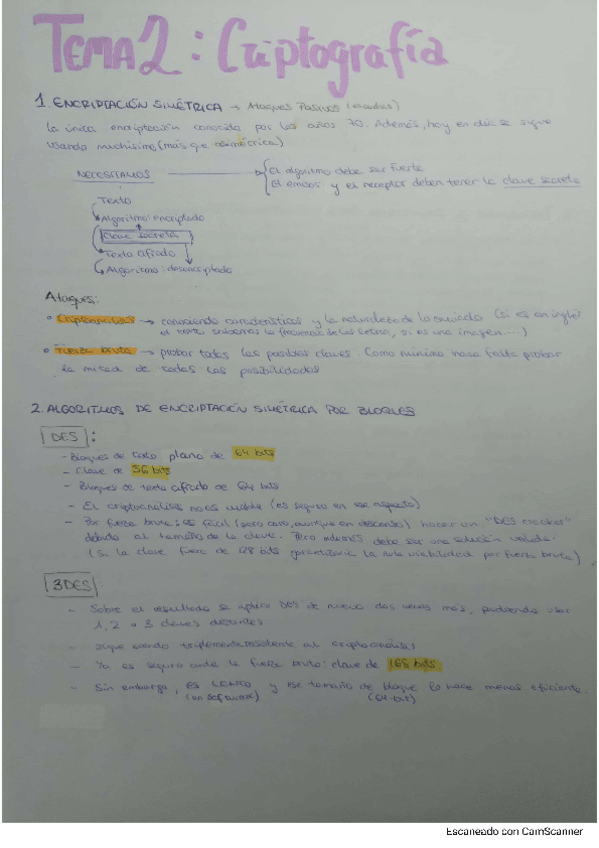 TEMA 2 : Criptografía
1. ENCRIPTACIÓN SIMÉTRICA → Ataques Pasivos (escuchas)
La única encriptación conocida por los años 70. Además, hoy en día se sigue
usando muchísimo (más que asimétrica)
NECESITAMOS → El algoritmo debe ser fuerte
El emisor y el receptor deben tener la clave secreta
Texto
Algoritmo: encriptado
Clave secreta
Texto cifrado
Algoritmo: desencriptado
Ataques:
• Criptoanálisis → conociendo características y la naturaleza de lo enviado (si es en inglés
el texto sabemos la frecuencia de las letras, si es una imagen....)
• Fuerza bruta → probar todas las posibles claves. Como mínimo hace falta probar
la mitad de todas las posibilidades
2. ALGORITMOS DE ENCRIPTACIÓN SIMÉTRICA POR BLOQUES
DES :
- Bloques de texto plano de 64 bits
- Clave de 56 bits
- Bloques de texto cifrado de 64 bits
- El criptoanálisis no es viable (es seguro en ese aspecto)
- Por fuerza bruta: es fácil (pero caro, aunque en descenso) hacer un "DES cracker"
debido al tamaño de la clave. Pero además debe ser una solución válida
(Si la clave fuera de 128 bits garantizaría la nula viabilidad por fuerza bruta)
3DES :
- Sobre el resultado se aplica DES de nuevo dos veces más, pudiendo usar
1, 2 o 3 claves distintas
- Sigue siendo triplemente resistente al criptoanálisis
- Ya es seguro ante la fuerza bruta: clave de 168 bits
- Sin embargo, es LENTO y ese tamaño de bloque lo hace menos eficiente.
(en software) (64-bit)
Escaneado con CamScanner